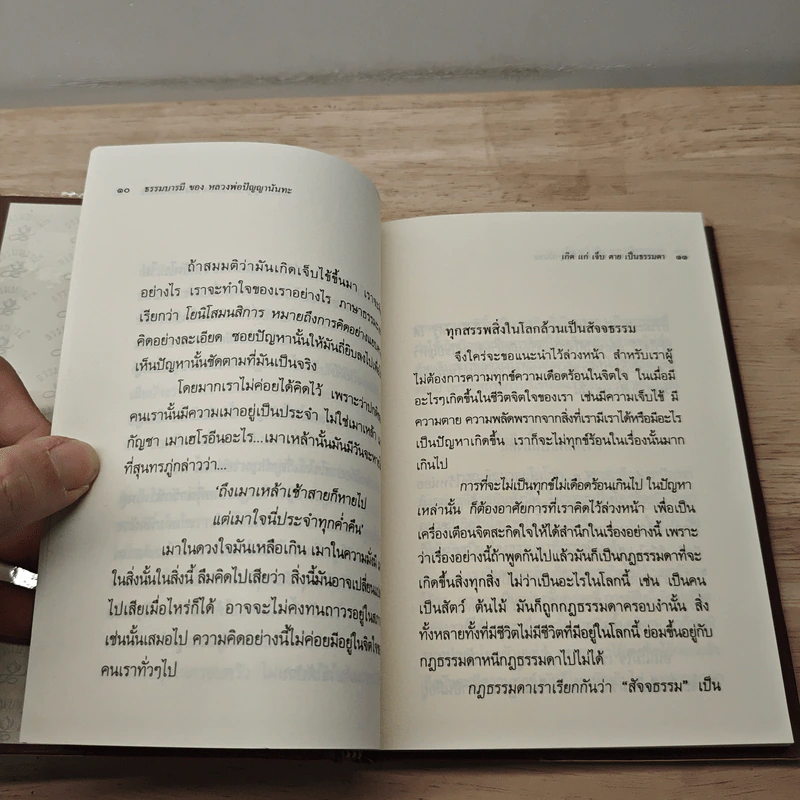 ๑๐ ธรรมบารมี ของ หลวงพ่อปัญญานันทะ
ถ้าสมมติว่ามันเกิดเจ็บไข้ขึ้นมา เราจะ
อย่างไร เราจะทำใจของเราอย่างไร ภาษาธรรมะ
เรียกว่า โยนิโสมนสิการ หมายถึงการคิดอย่าง
คิดอย่างละเอียด ซอยปัญหานั้นให้มันถี่ยิบลงไป
เห็นปัญหานั้นชัดตามที่มันเป็นจริง
โดยมากเราไม่ค่อยได้คิดไว้ เพราะว่าปกติ
คนเรานั้นมีความเมาอยู่เป็นประจำ ไม่ใช่เมาเหล้า
กัญชา เมาเฮโรอีนอะไร...เมาเหล้านั้นมันมีวันจะหาย
ที่สุนทรภู่กล่าวว่า...
‘ถึงเมาเหล้าเช้าสายก็หายไป
แต่เมาใจนี่ประจำทุกค่ำคืน’
เมาในดวงใจมันเหลือเกิน เมาในความมั่งมี
ในสิ่งนั้นในสิ่งนี้ ลืมคิดไปเสียว่า สิ่งนี้มันอาจเปลี่ยนแปลง
ไปเสียเมื่อไหร่ก็ได้ อาจจะไม่คงทนถาวรอยู่ในสภาพ
เช่นนั้นเสมอไป ความคิดอย่างนี้ไม่ค่อยมีอยู่ในจิตใจของ
คนเราทั่วๆไป
เกิด แก่ เจ็บ ตาย เป็นธรรมดา ๑๑
ทุกสรรพสิ่งในโลกล้วนเป็นสัจจธรรม
จึงใคร่จะขอแนะนำไว้ล่วงหน้า สำหรับเราผู้
ไม่ต้องการความทุกข์ความเดือดร้อนในจิตใจ ในเมื่อมี
อะไรๆเกิดขึ้นในชีวิตจิตใจของเรา เช่นมีความเจ็บไข้ มี
ความตาย ความพลัดพรากจากสิ่งที่เรามีเราได้หรือมีอะไร
เป็นปัญหาเกิดขึ้น เราก็จะไม่ทุกข์ร้อนในเรื่องนั้นมาก
เกินไป
การที่จะไม่เป็นทุกข์ไม่เดือดร้อนเกินไป ในปัญหา
เหล่านั้น ก็ต้องอาศัยการที่เราคิดไว้ล่วงหน้า เพื่อเป็น
เครื่องเตือนจิตสะกิดใจให้ได้สำนึกในเรื่องอย่างนี้ เพราะ
ว่าเรื่องอย่างนี้ถ้าพูดกันไปแล้วมันก็เป็นกฎธรรมดาที่จะ
เกิดขึ้นสิ่งทุกสิ่ง ไม่ว่าเป็นอะไรในโลกนี้ เช่น เป็นคน
เป็นสัตว์ ต้นไม้ มันก็ถูกกฎธรรมดาครอบงำนั้น สิ่ง
ทั้งหลายทั้งที่มีชีวิตไม่มีชีวิตที่มีอยู่ในโลกนี้ ย่อมขึ้นอยู่กับ
กฎธรรมดาหนีกฎธรรมดาไปไม่ได้
กฎธรรมดาเราเรียกกันว่า “สัจจธรรม” เป็น